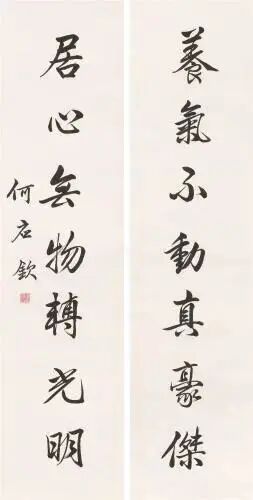 養氣不動真豪傑
居心無物轉光明
何應欽